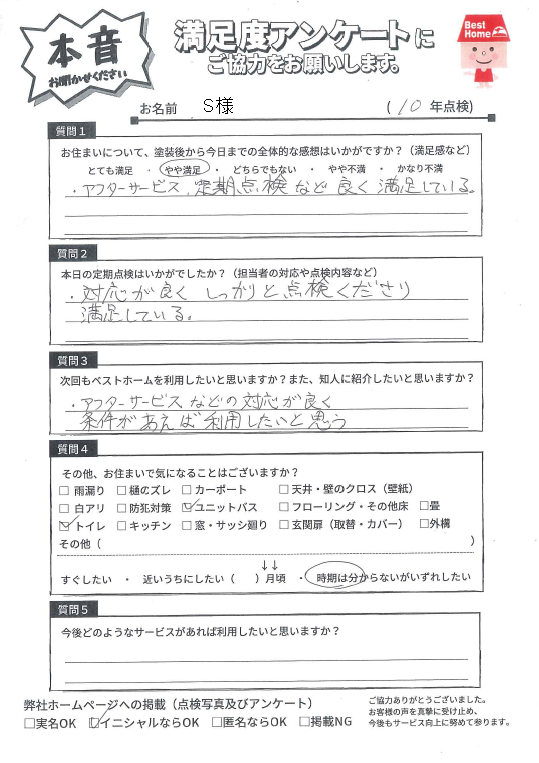 本音
お聞かせください
満足度アンケートに
ご協力をお願いします。
Best
Home
お名前 S様 (10年点検)
質問1
お住まいについて、塗装後から今日までの全体的な感想はいかがですか?(満足感など)
とても満足 ・ やや満足 ・ どちらでもない ・ やや不満 ・ かなり不満
・アフターサービス、定期点検など良く満足している。
質問2
本日の定期点検はいかがでしたか?(担当者の対応や点検内容など)
・対応が良く しっかりと点検くださり
満足している。
質問3
次回もベストホームを利用したいと思いますか?また、知人に紹介したいと思いますか?
・アフターサービスなどの対応が良く
条件があえば利用したいと思う
質問4
その他、お住まいで気になることはございますか?
□ 雨漏り □ 樋のズレ □ カーポート □ 天井・壁のクロス(壁紙)
□ 白アリ □ 防犯対策 ☑ ユニットバス □ フローリング・その他床 □畳
☑ トイレ □ キッチン □ 窓・サッシ廻り □ 玄関扉(取替・カバー) □外構
その他( )
↓↓
すぐしたい ・ 近いうちにしたい( )月頃 ・ 時期は分からないがいずれしたい
質問5
今後どのようなサービスがあれば利用したいと思いますか?
弊社ホームページへの掲載(点検写真及びアンケート)
□実名OK ☑イニシャルならOK □匿名ならOK □掲載NG
ご協力ありがとうございました。
お客様の声を真摯に受け止め、
今後もサービス向上に努めて参ります。